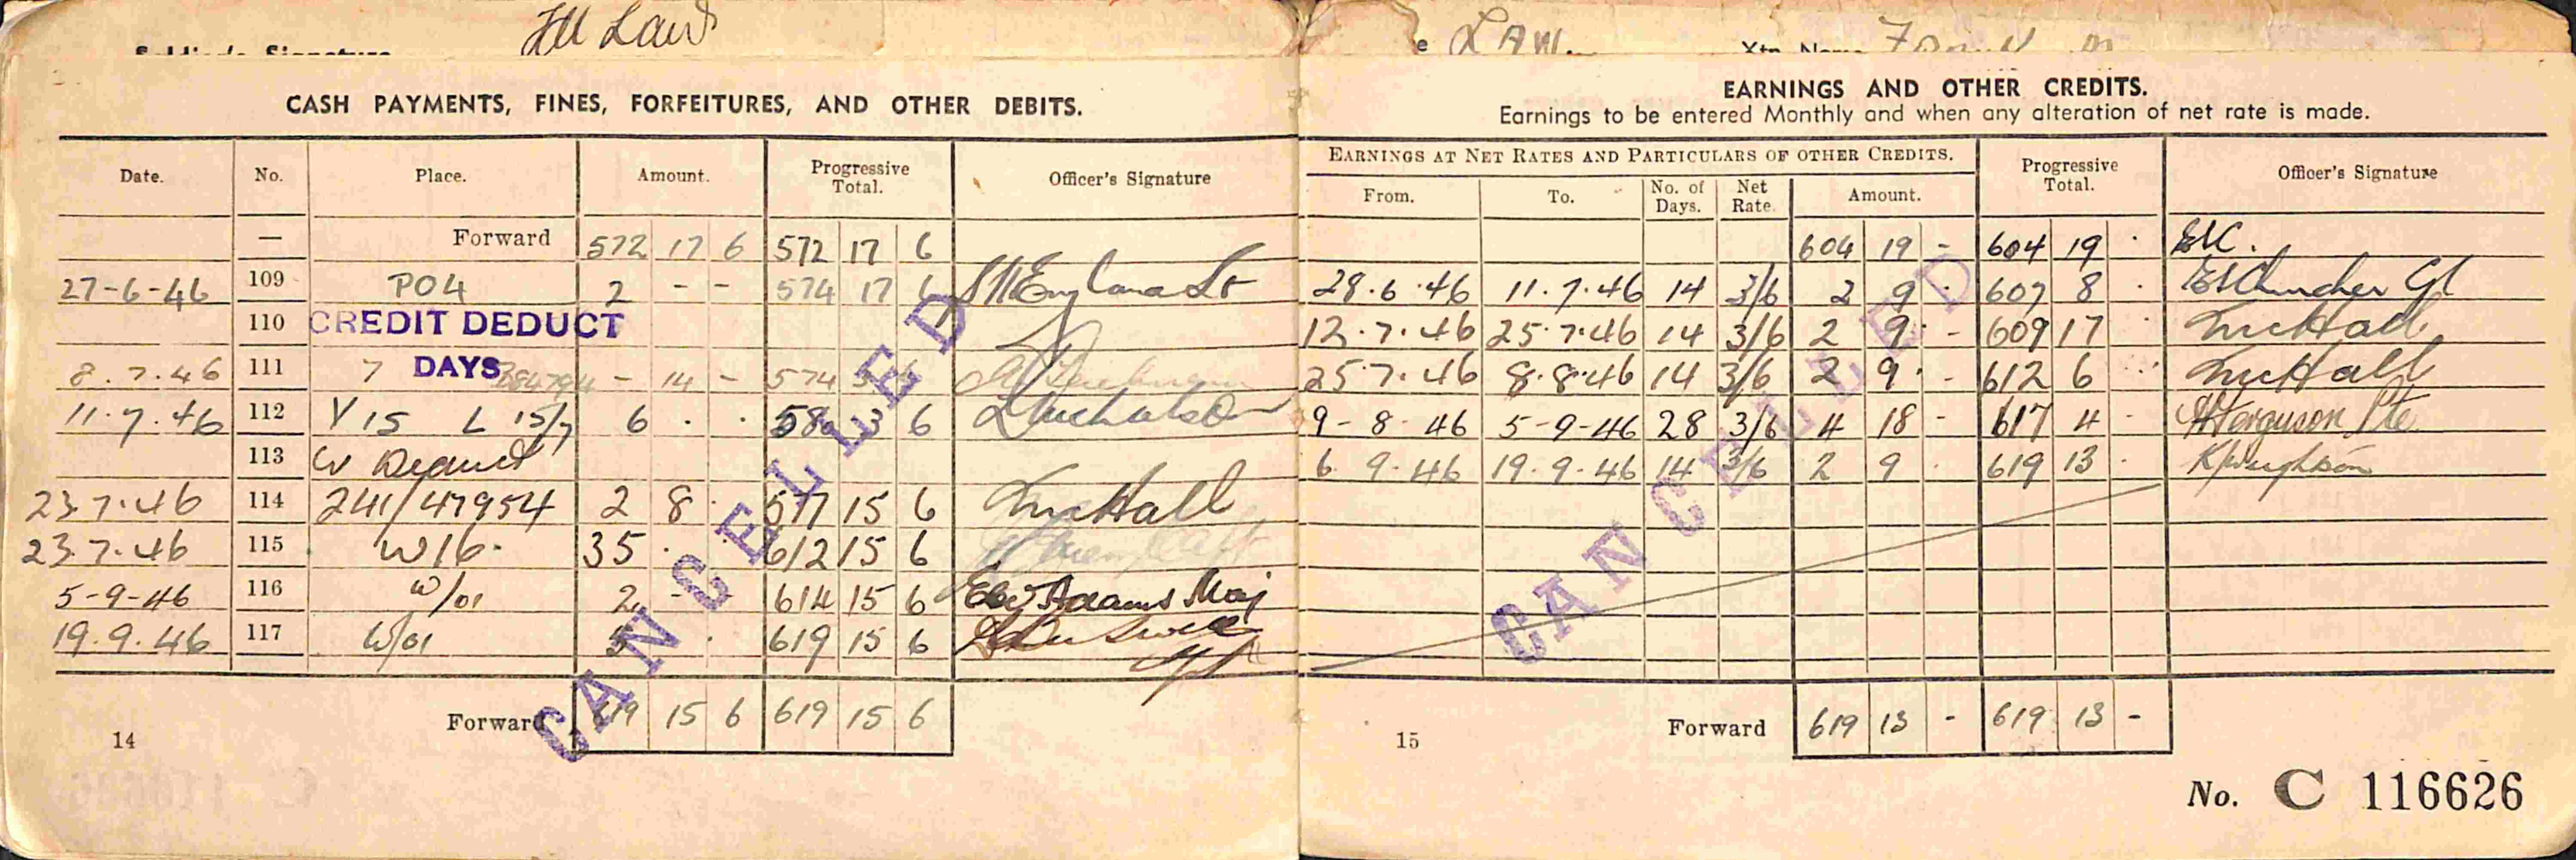 Soldier's Signature
LAW.
Xtn. Name
CASH PAYMENTS, FINES, FORFEITURES, AND OTHER DEBITS.
Date. No. Place. Amount. Progressive Total. Officer's Signature
— Forward 572 17 6 572 17 6
27-6-46 109 PO4 2 - - 574 17 6
110 CREDIT DEDUCT
8.7.46 111 7 DAYS - 14 - 574 3 6
11.7.46 112 V15 L 15/7 6 . . 580 3 6 L Nicholson
113 Cr Deduct
23.7.46 114 241/47954 2 8 . 577 15 6 Hall
23.7.46 115 W16. 35 . . 612 15 6
5-9-46 116 W/01 2 - - 614 15 6 Adams Maj
19.9.46 117 W/01 5 . . 619 15 6
Forward 619 15 6 619 15 6
14
CANCELLED
EARNINGS AND OTHER CREDITS.
Earnings to be entered Monthly and when any alteration of net rate is made.
EARNINGS AT NET RATES AND PARTICULARS OF OTHER CREDITS. Progressive Total. Officer's Signature
From. To. No. of Days. Net Rate. Amount.
604 19 - 604 19 .
28.6.46 11.7.46 14 3/6 2 9 . 607 8 .
12.7.46 25.7.46 14 3/6 2 9 - 609 17 . Hall
25.7.46 8.8.46 14 3/6 2 9 - 612 6 . Hall
9-8-46 5-9-46 28 3/6 4 18 - 617 4 - Ferguson Pte
6 9.46 19.9.46 14 3/6 2 9 . 619 13 .
CANCELLED
Forward 619 13 - 619 13 -
15
No. C 116626